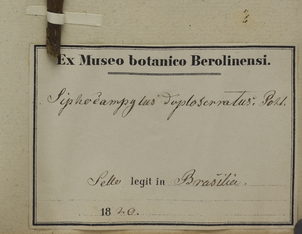 Ex Museo botanico Berolinensi.
Siphocampylus duploserratus. Pohl.
Sello legit in Brasilia.
1820.